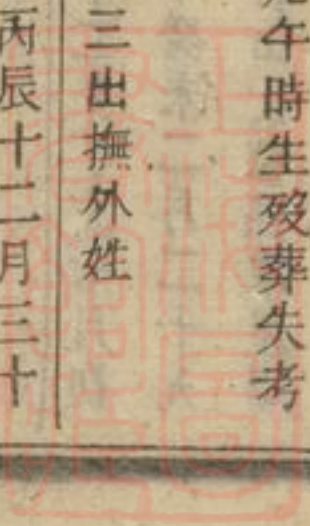 午時生歿葬失考
三出撫外姓
丙辰十二月三十